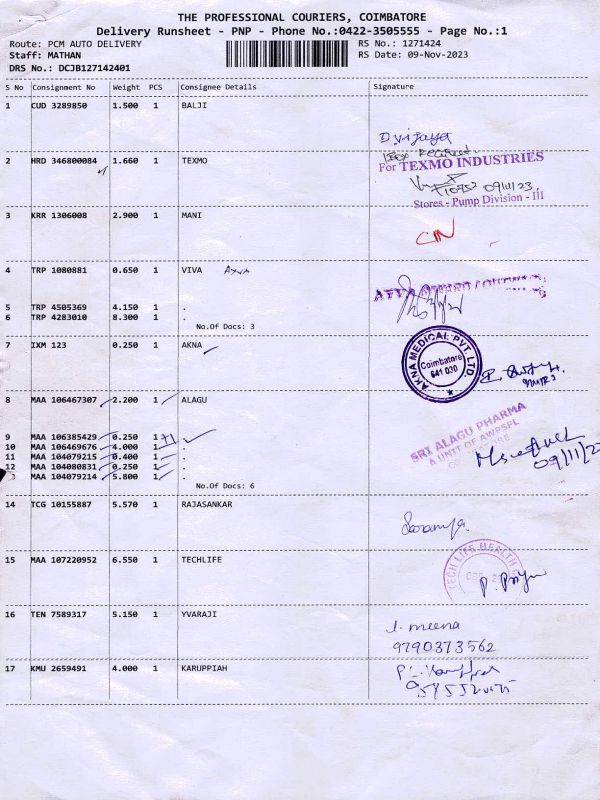 THE PROFESSIONAL COURIERS, COIMBATORE
Delivery Runsheet - PNP - Phone No.:0422-3505555 - Page No.:1
Route: PCM AUTO DELIVERY RS No.: 1271424
Staff: MATHAN RS Date: 09-Nov-2023
DRS No.: DCJB127142401
S No Consignment No Weight PCS Consignee Details Signature
1 CUD 3289850 1.500 1 BALJI
D vijaya
Box Received.
2 HRD 346800084 1.660 1 TEXMO
For TEXMO INDUSTRIES
09/11/23.
Stores - Pump Division - III
3 KRR 1306008 2.900 1 MANI
4 TRP 1080881 0.650 1 VIVA
5 TRP 4505369 4.150 1 .
6 TRP 4283010 8.300 1 .
No.Of Docs: 3
7 IXM 123 0.250 1 AKNA
AKNA MEDICAL PVT. LTD.
Coimbatore
641 030
8 MAA 106467307 2.200 1 ALAGU
SRI ALAGU PHARMA
A UNIT OF AWPSPL
9 MAA 106385429 0.250 1 +1 .
10 MAA 106469676 4.000 1 .
11 MAA 104079215 0.400 1 .
12 MAA 104080831 0.250 1 .
MAA 104079214 5.800 1 .
09/11/23
No.Of Docs: 6
14 TCG 10155887 5.570 1 RAJASANKAR
Saranya
15 MAA 107220952 6.550 1 TECHLIFE
TECH LIFE HEALTH
16 TEN 7589317 5.150 1 YVARAJI
meena
9790373562
17 KMU 2659491 4.000 1 KARUPPIAH